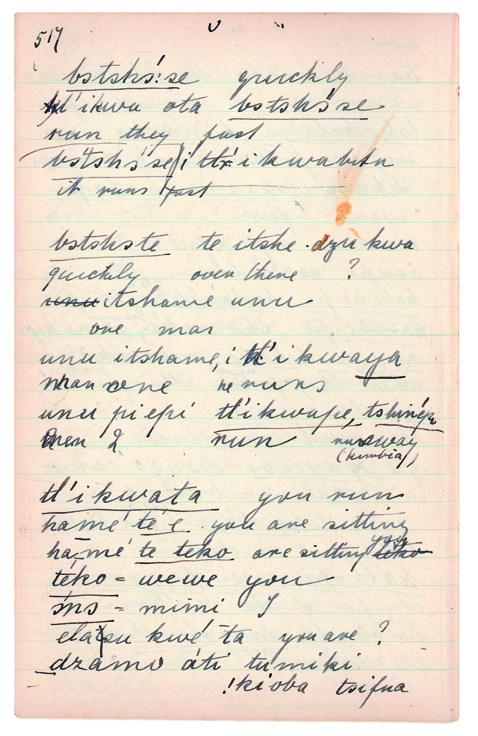 517
bɔtshɔ́:se quickly
tl'ikwa ota bɔtshɔ́se
run they fast
bɔtshɔ́se/i tl'ikwabɛtɛ
it runs fast
bɔtshɔte te itshe dzɛ kwa
quickly over there ?
itshame unu
one man
unu itshame, i tl'ikwaya
man one he runs
unu piepi tl'ikwape, tshinépɛ
men 2 run runaway
(kimbia)
tl'ikwata you run
hamé té e you are sitting
ha-mé te teko are sitting you teko
téko = wewe you
ɔ́nɔ = mimi I
elaɔu kwé ta you are ?
dzamo áti tumiki
!kioba tsifua